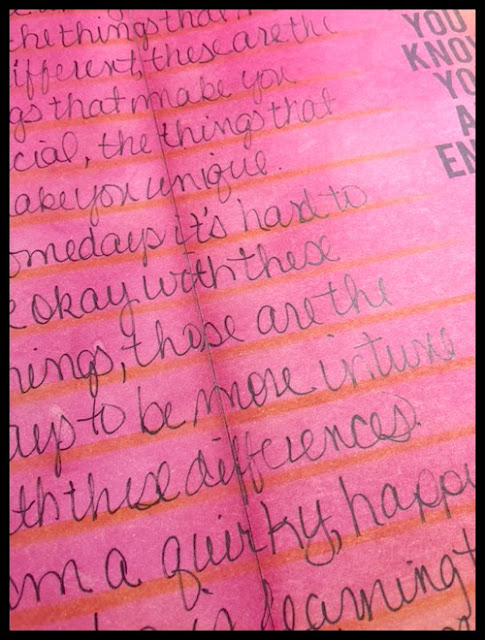 the things that m
ifferent, these are the
gs that make you
cial, the things that
ake you unique.
omedays it's hard to
e okay with these
hings, those are the
ays to be more in tune
th these differences.
am a quirky, happy
is learning t
YOU
KNOW
YO
A
EN